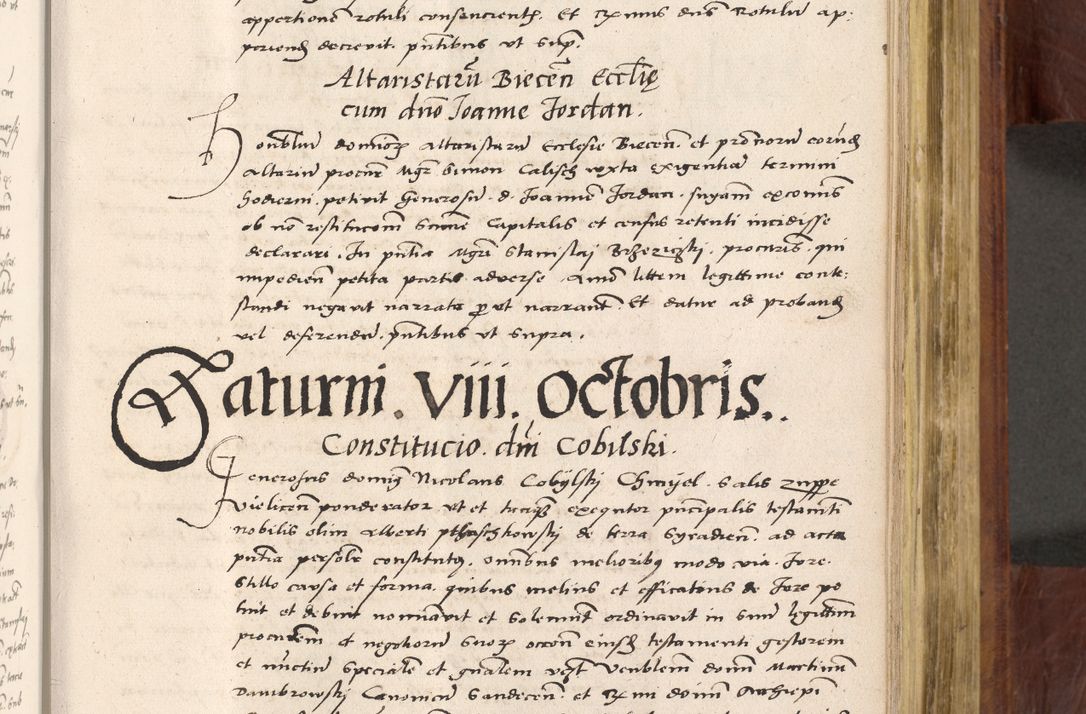 appertione rotuli consencient. Et Rxmus dns Rotulu ap:
periend decrevit. pntibus ut supra.
Altaristaru Biecen Ecclie
cum dno Joanne Jordan.
Honorabiliu dominor altaristaru Ecclesie Biecen. et pronoru eorund
altariu procur Mgr Simon Calisch iuxta exigentia termini
hodierni petivit Generosu. d. Joanne Jordan. suyam excois
ob no restitucom sume Capitalis et census retenti incidisse
declarari. In pntia Mgri Stanislaj Brzeziczkj. procuris. qui
impedien petita partis adverse. animo litem legittime conte:
standi negavit narrata prout narrant. Et datur ad proband
vel deferendu. pntibus ut supra.
Saturni. VIII. Octobris.
Constitucio. dni Cobilski.
Generosus dominus Nicolaus Cobylskj Chmyel. Salis zuppe
Vielicen ponderator ut et tanq exequtor principalis testamti
nobilis olim Alberti pthaschkowskj de terra Syradien. ad acta
pntia personale constitutus. omnibus melioribus modo via. Jure.
Stillo causa et forma. quibus melius et efficatius de Jure po
tuit et debuit nominavit et solemnit ordinavit in suum legittim
procurem et negotioru suor accon eiusd testamenti gestorem
et nuctiu speciale et gnalem vz Venblem domin Martinum
Dambrowskj Canonicu Sandecen. et Rx mi domini Archiepi